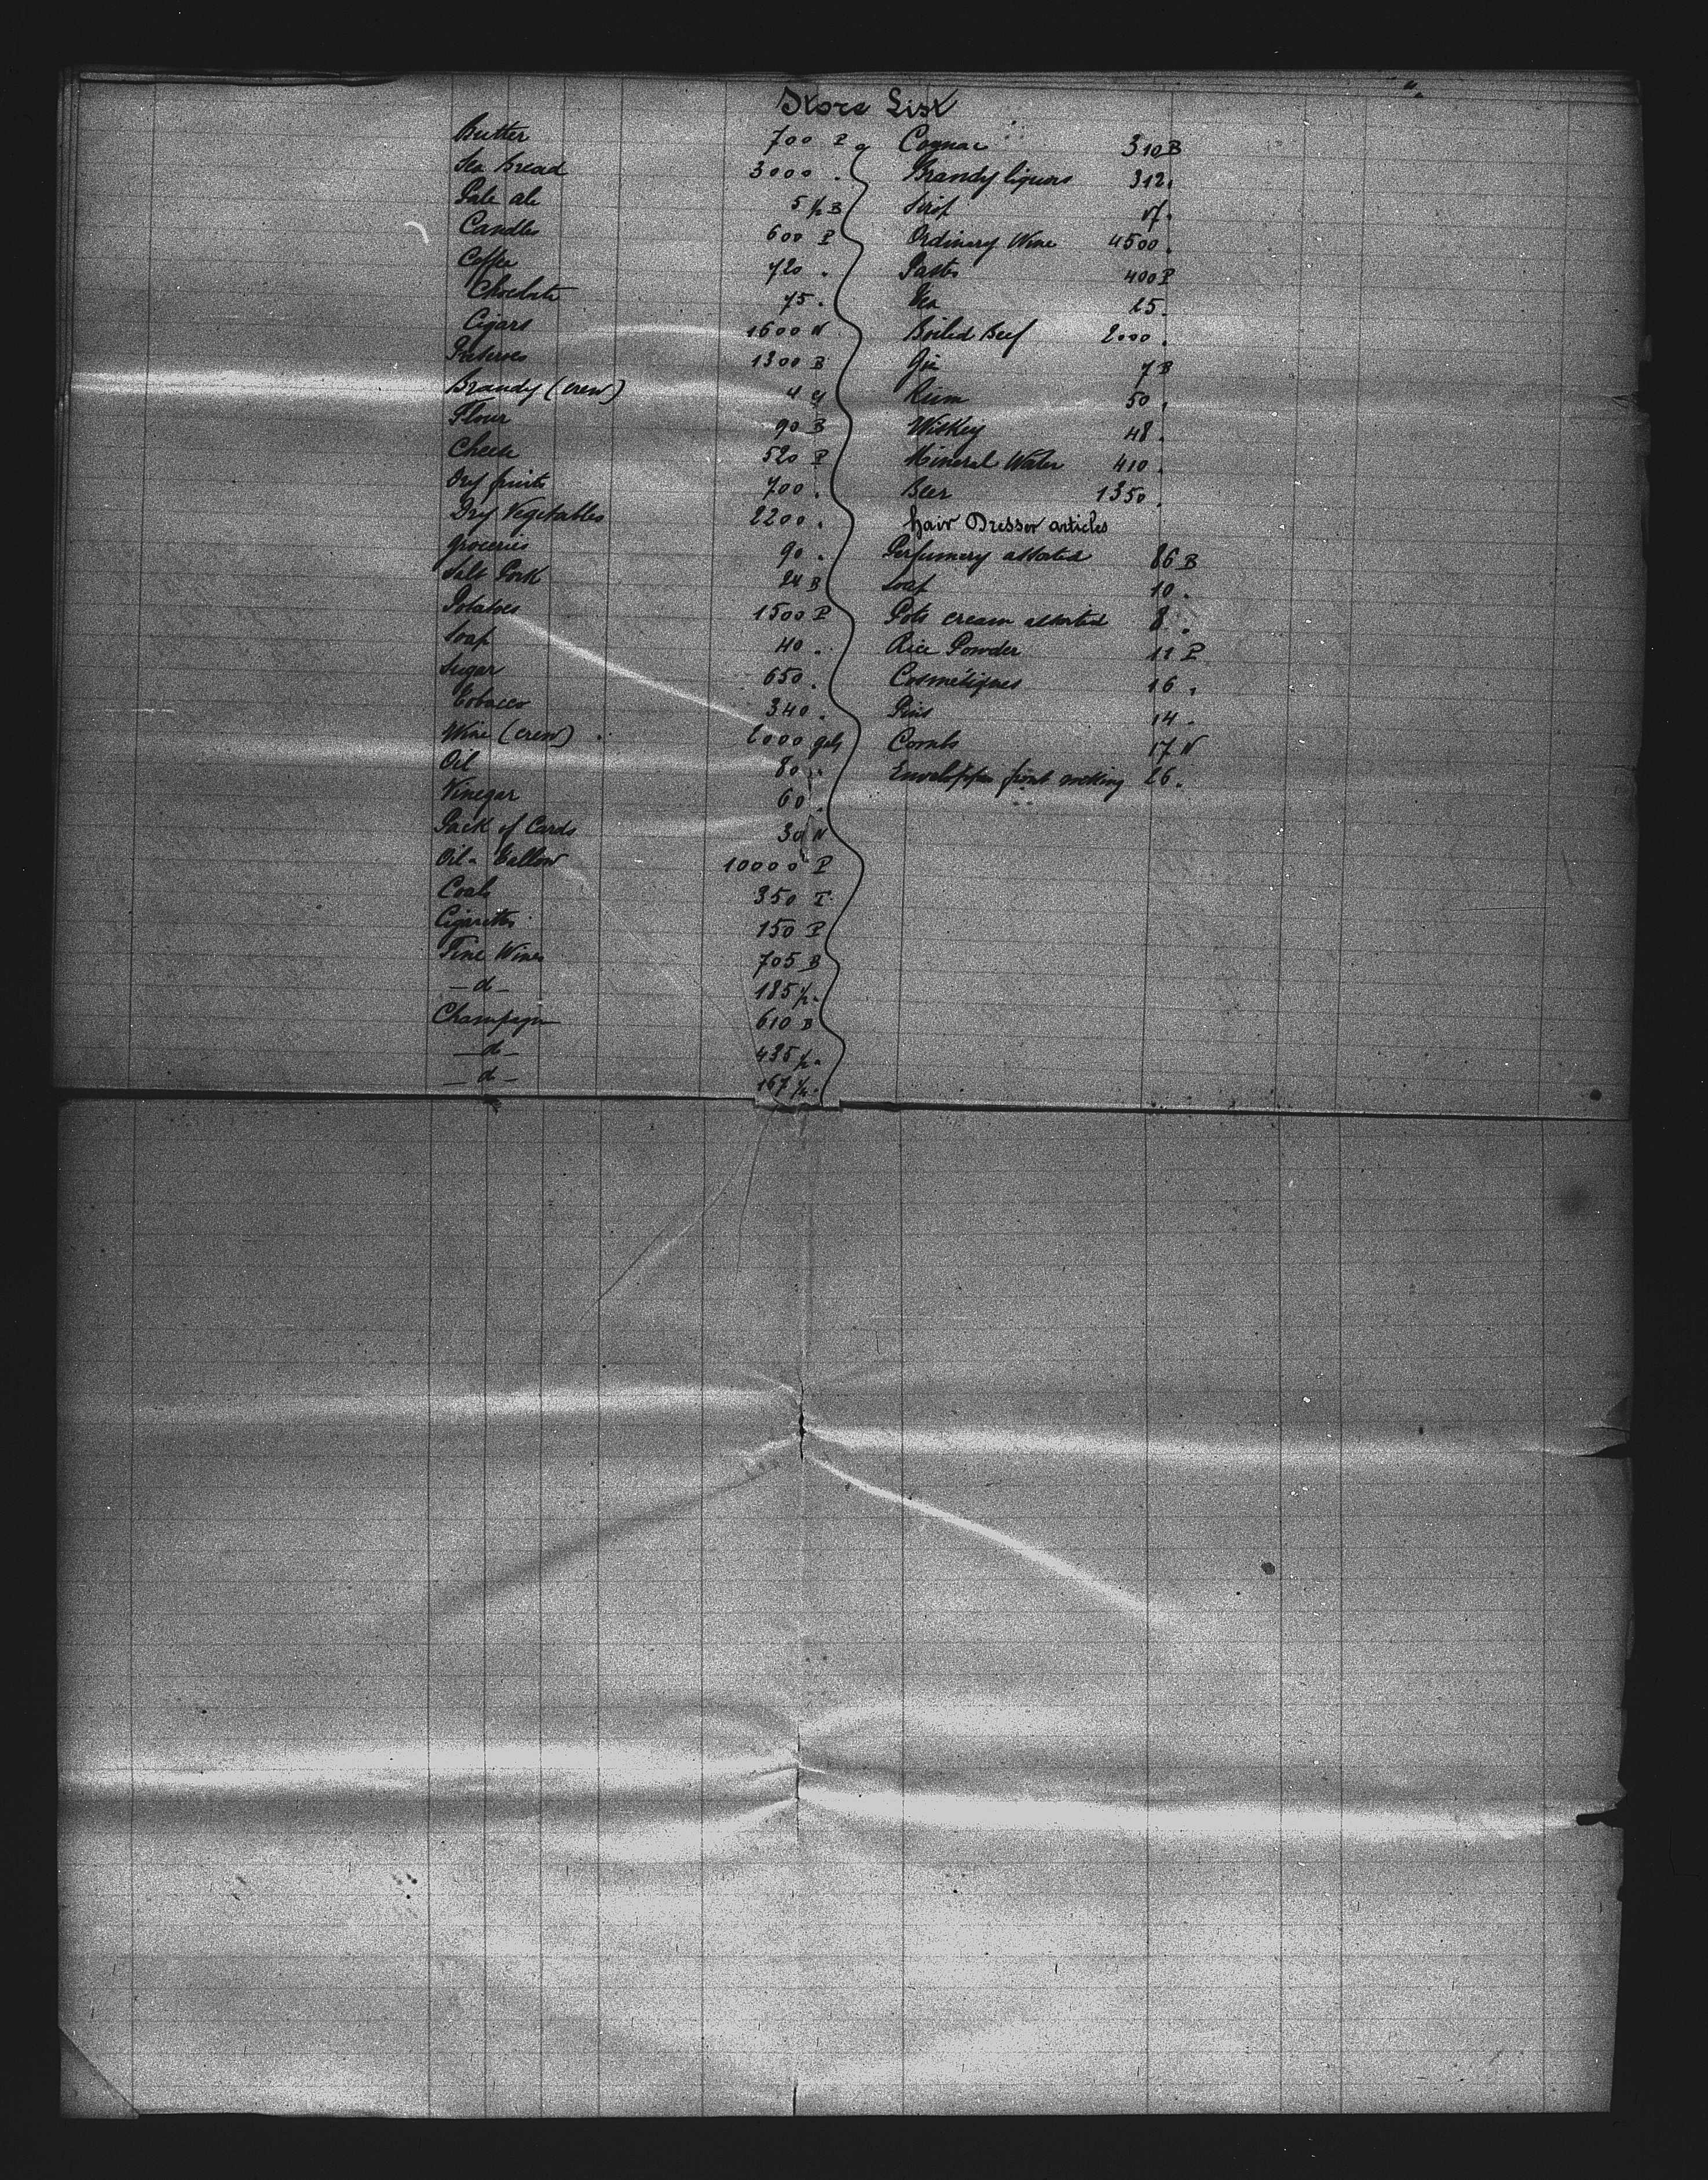 Store List
Butter 700 P
Sea Bread 3000 .
Pale ale 5 1/2 B
Candles 600 P
Coffee 720 .
Chocolate 75 .
Cigars 1600 N
Preserves 1300 B
Brandy (crew) 4 g
Flour 90 B
Cheese 520 P
Dry fruits 700 .
Dry Vegetables 2200 .
Groceries 90 .
Salt Pork 24 B
Potatoes 1500 P
Soap 40 .
Sugar 650 .
Tobacco 340 .
Wine (crew) 2000 gals
Oil 80 "
Vinegar 60 .
Pack of Cards 30 N
Oil - Tallow 10000 P
Coals 350 T
Cigarettes 150 P
Fine Wines 705 B
- d - 185 1/2 .
Champagne 610 B
- d - 435 1/2 .
- d - 167 1/2 .
Cognac 310 B
Brandy liquors 312 .
Sirop 17 .
Ordinary Wine 4500 .
Pastes 400 P
Tea 25 .
Boiled Beef 2000 .
Gin 7 B
Rum 50 .
Wiskey 48 .
Mineral Water 410 .
Beer 1350 .
hair Dresser articles
Perfumery assorted 86 B
Soap 10 .
Pots cream assorted 8 .
Rice Powder 11 P
Cosmétiques 16 .
Pins 14 .
Combs 17 N
Enveloppes front 26 .